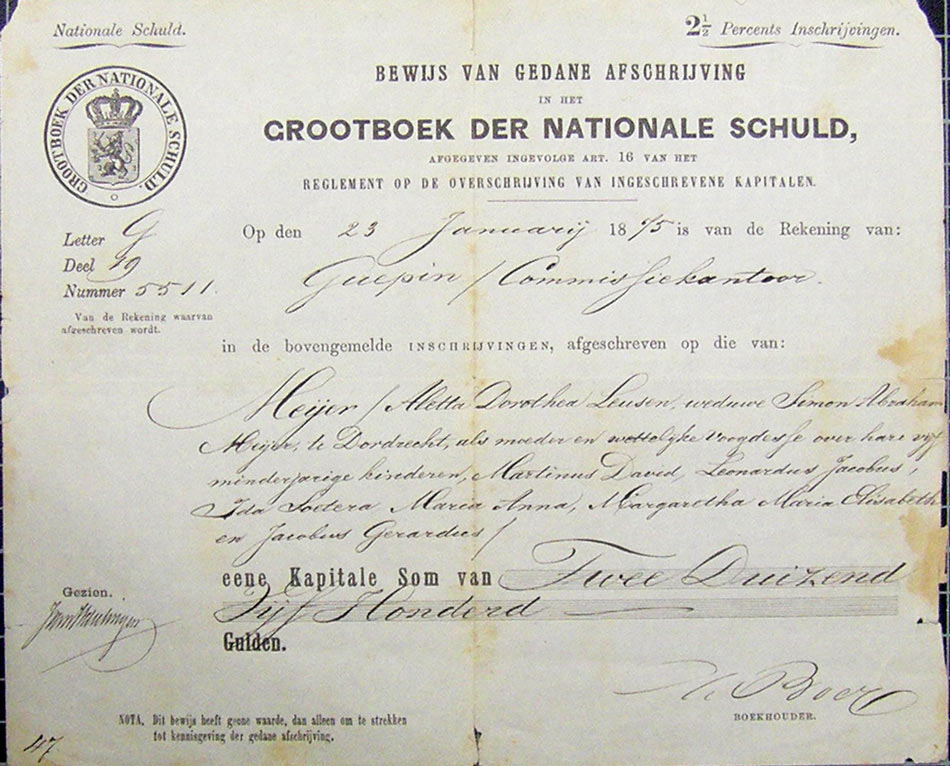 Nationale Schuld.
2½ Percents Inschrijvingen.
GROOTBOEK DER NATIONALE SCHULD.
BEWIJS VAN GEDANE AFSCHRIJVING
IN HET
GROOTBOEK DER NATIONALE SCHULD,
AFGEGEVEN INGEVOLGE ART. 16 VAN HET
REGLEMENT OP DE OVERSCHRIJVING VAN INGESCHREVENE KAPITALEN.
Letter G
Deel 19
Nummer 5511.
Van de Rekening waarvan
afgeschreven wordt.
Op den 23 Januarij 1875 is van de Rekening van:
Guepin / Commissiekantoor.
in de bovengemelde INSCHRIJVINGEN, afgeschreven op die van:
Meijer / Aletta Dorothea Leusen, weduwe Simon Abraham
Meijer, te Dordrecht, als moeder en wettelijke Voogdesse over hare vijf
minderjarige kinderen, Martinus David, Leonardus Jacobus,
Ida Maria Anna, Margaretha Maria Elisabeth
en Jacobus Gerardus /
eene Kapitale Som van Twee Duizend
Vijf Honderd
Gulden.
Gezien.
de Boer
BOEKHOUDER.
NOTA. Dit bewijs heeft geene waarde, dan alleen om te strekken
tot kennisgeving der gedane afschrijving.
47.